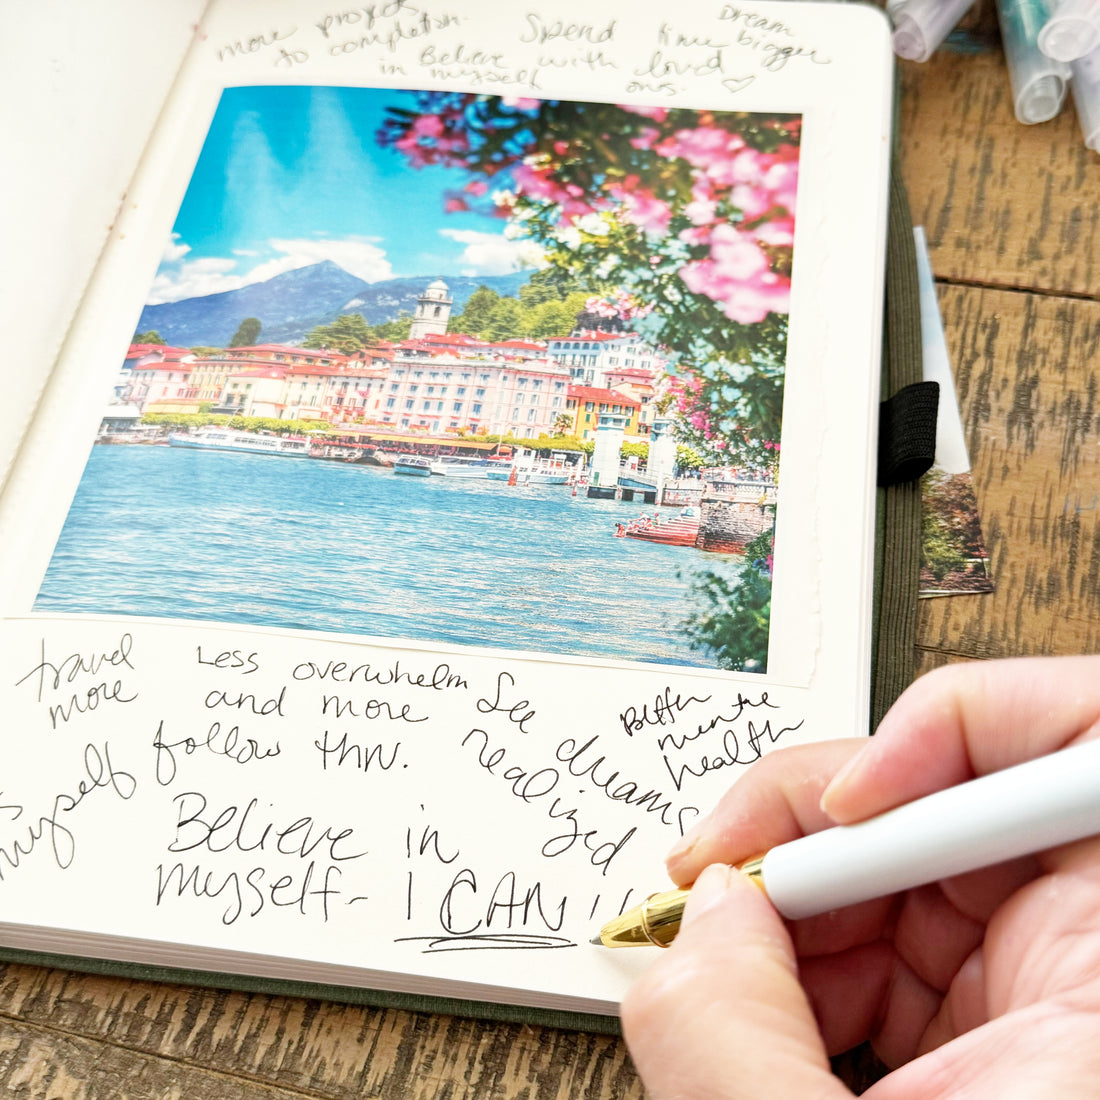 more projects
to completion.
Believe
in myself
Spend time
with loved
ones.
Dream
bigger
travel
more
Less overwhelm
and more
follow thru.
See
dreams
realized
Better
health
myself
myself
Believe in
myself - I CAN!!